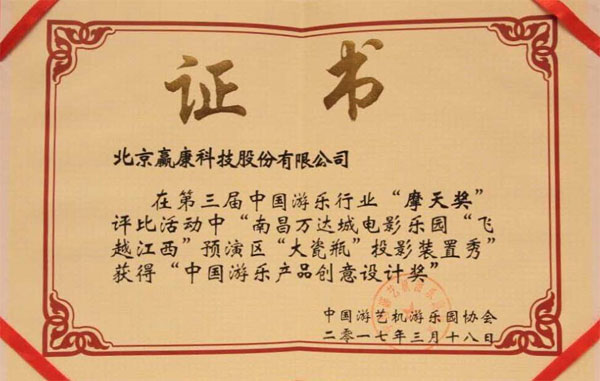 证书
北京赢康科技股份有限公司
在第三届中国游乐行业“摩天奖”
评比活动中“南昌万达城电影乐园“飞
越江西”预演区“大瓷瓶”投影装置秀”
获得“中国游乐产品创意设计奖”
中国游艺机游乐园协会
二零一七年三月十八日